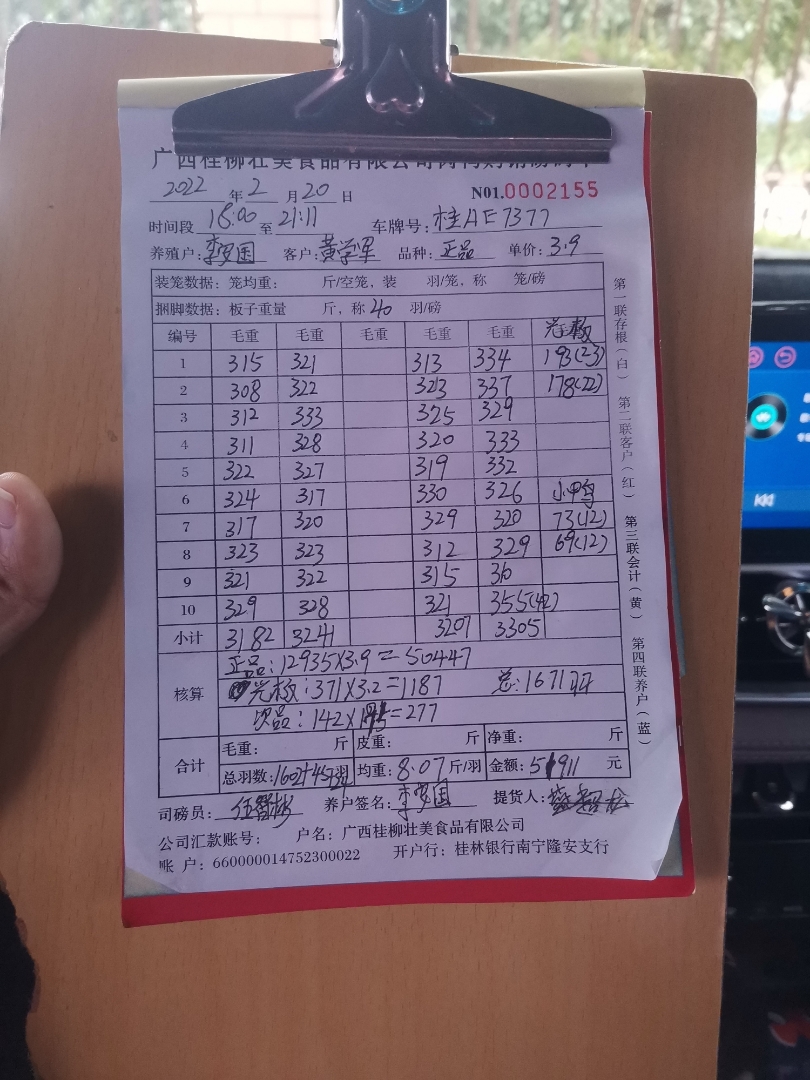 广西桂柳壮美食品有限公司
2022 年 2 月 20 日 N01.0002155
时间段 18:00 至 21:11 车牌号: 桂AE7377
养殖户: 国 客户: 黄学军 品种: 正品 单价: 3.9
装笼数据: 笼均重: 斤/空笼, 装 羽/笼, 称 笼/磅
捆脚数据: 板子重量 斤, 称 40 羽/磅
编号 毛重 毛重 毛重 毛重 毛重 光板
1 315 321 313 334 193(23)
2 308 322 323 337 178(22)
3 312 333 325 329
4 311 328 320 333
5 322 327 319 332
6 324 317 330 326 小鸭
7 317 320 329 320 73(12)
8 323 323 312 329 69(12)
9 321 322 315 310
10 329 328 321 355(42)
小计 3182 3241 3207 3305
正品: 12935×3.9=50447
核算 光板: 371×3.2=1187 总: 1671羽
次品: 142× =277
合计 毛重: 斤 皮重: 斤 净重: 斤
总羽数: 1602+45羽 均重: 8.07 斤/羽 金额: 51911 元
司磅员: 养户签名: 国 提货人:
公司汇款账号: 户名: 广西桂柳壮美食品有限公司
账 户: 660000014752300022 开户行: 桂林银行南宁隆安支行
第一联存根(白) 第二联客户(红) 第三联会计(黄) 第四联养户(蓝)